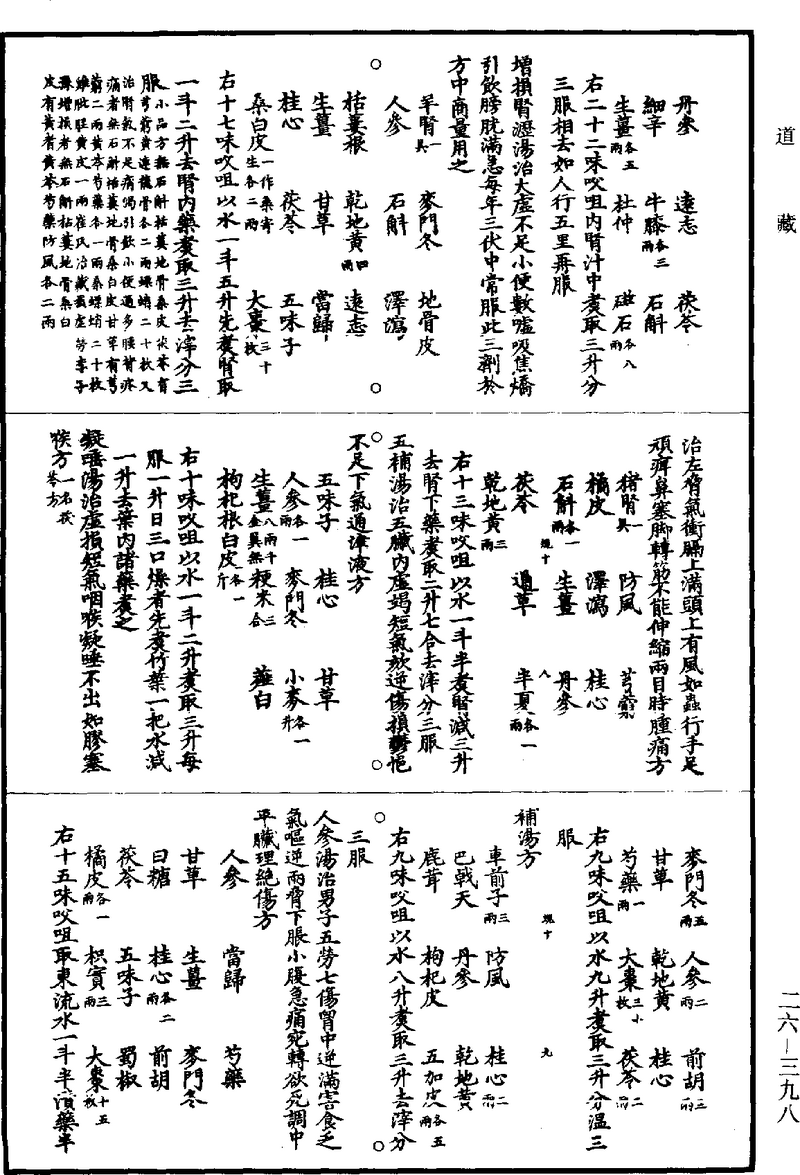 道藏
二六—三九八
丹參　遠志　茯苓
細辛　牛膝各三兩　石斛
生薑各五兩　杜仲　磁石各八兩
右二十二味㕮咀內腎汁中煑取三升分
三服相去如人行五里再服
增損腎瀝湯治大虛不足小便數噓吸焦燆
引飲膀胱滿急每年三伏中常服此三劑於
方中商量用之
羊腎一具　麥門冬　地骨皮
人參　石斛　澤瀉
栝蔞根　乾地黃四兩　遠志
生薑　甘草　當歸
桂心　茯苓　五味子
桑白皮一作桑寄生各二兩　大棗三十枚
右十七味㕮咀以水一斗五升先煑腎取
一斗二升去腎內藥煑取三升去滓分三
服小品方無石斛栝蔞地骨桑皮茯苓有芎藭黃連龍骨各二兩螵蛸二十枚又
治腎氣不足痛渴引飲小便過多腰背疼痛者無石斛栝蔞地骨桑白皮甘草有芎
藭二兩黃芩芍藥各一兩桑螵蛸二十枚雞肶胵黃皮一兩崔氏治臟虛勞李子
豫增損者無石斛栝蔞地骨桑白皮有黃耆黃芩芍藥防風各二兩
治左脅氣衝膈上滿頭上有風如蟲行手足
頑痹鼻塞脚轉筋不能伸縮兩目時腫痛方
猪腎一具　防風　芎藭
橘皮　澤瀉　桂心
石斛各一兩　生薑　丹參
茯苓　通草　半夏各一兩
乾地黃三兩
右十三味㕮咀以水一斗半煑腎減三升
去腎下藥煑取二升七合去滓分三服
五補湯治五臟內虛竭短氣欬逆傷損鬱悒
不足下氣通津液方
五味子　桂心　甘草
人參各一兩　麥門冬　小麥各一升
生薑八兩千金翼無　粳米三合　薤白
枸杞根白皮各一斤
右十味㕮咀以水一斗二升煑取三升每
服一升日三口燥者先煑竹葉一把水減
一升去葉內諸藥煑之
凝唾湯治虛損短氣咽喉凝唾不出如膠塞
喉方一名茯苓方
麥門冬五兩　人參二兩　前胡三兩
甘草　乾地黃　桂心
芍藥一兩　大棗三十枚　茯苓二兩
右九味㕮咀以水九升煑取三升分溫三
服
補湯方
車前子三兩　防風　桂心二兩
巴戟天　丹參　乾地黃
鹿茸　枸杞皮　五加皮各五兩
右九味㕮咀以水八升煑取三升去滓分
三服
人參湯治男子五勞七傷胷中逆滿害食乏
氣嘔逆兩脅下脹小腹急痛宛轉欲死調中
平臟理絕傷方
人參　當歸　芍藥
甘草　生薑　麥門冬
白糖　桂心各二兩　前胡
茯苓　五味子　蜀椒
橘皮各一兩　枳實三兩　大棗十五枚
右十五味㕮咀取東流水一斗半漬藥半